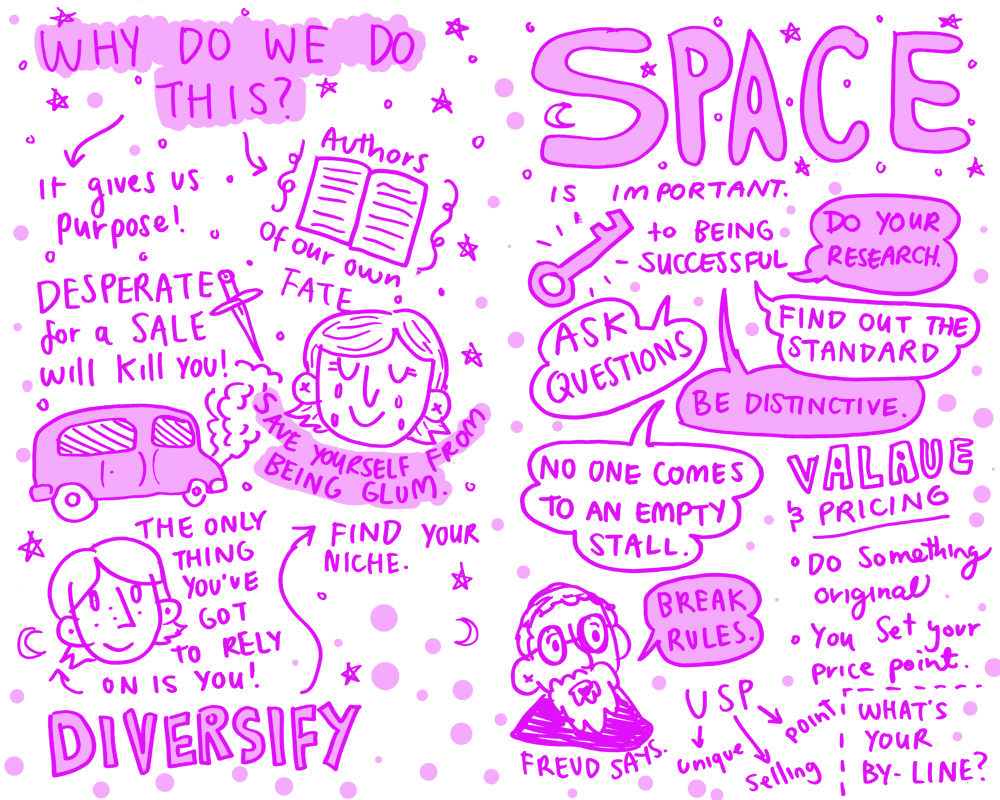 WHY DO WE DO
THIS?
It gives us
purpose!
Authors
of our own
FATE
DESPERATE
for a SALE
will kill you!
SAVE YOURSELF FROM
BEING GLUM.
THE ONLY
THING
YOU'VE
GOT
TO RELY
ON IS YOU!
FIND YOUR
NICHE.
DIVERSIFY
SPACE
IS IMPORTANT.
to BEING
- SUCCESSFUL
DO YOUR
RESEARCH.
ASK
QUESTIONS
FIND OUT THE
STANDARD
BE DISTINCTIVE.
NO ONE COMES
TO AN EMPTY
STALL.
VALAUE
& PRICING
• DO Something
original
• You Set your
price point.
BREAK
RULES.
FREUD SAYS.
USP
unique
selling
point
WHAT'S
YOUR
BY-LINE?